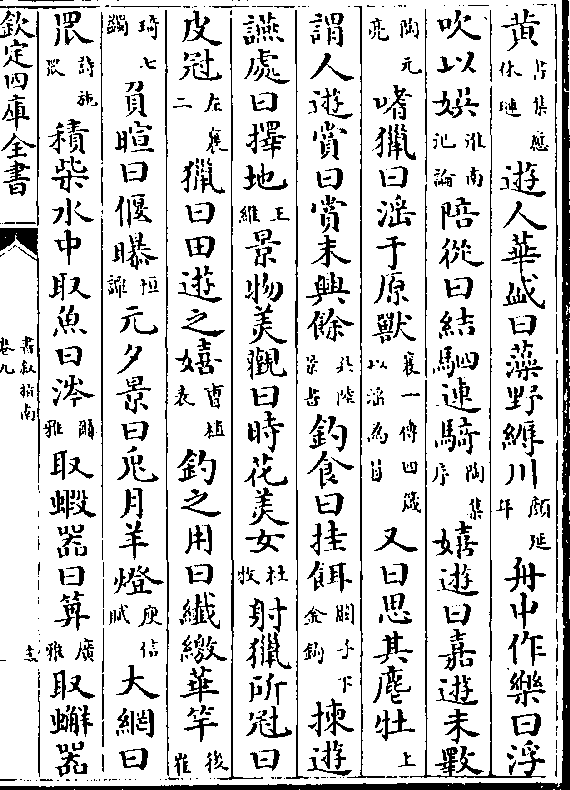 黄占集應休璉遊人華盛曰藻野縟川顔延年舟中作樂曰浮
吹以娯淮南氾論陪從曰結駟連騎陶集序嬉遊曰嘉遊未斁
陶元亮嗜獵曰滛于原獸襄一傳四箴以滛為冒又曰思其麀牡上
謂人遊賞曰賞末興餘於陸景占釣食曰挂餌闕子下金鉤揀遊
讌處曰擇地王維景物美觀曰時花美女杜牧射獵所冠曰
皮冠左襄二獵曰田遊之娯曹植表釣之用曰纎繳華竿後崔
琦七蠲負暄曰偃曝恒譚元夕景曰兎月羊燈庾信賦大網曰
罛詩施罛積柴水中取魚曰涔爾雅取蝦器曰䈪廣雅取蠏器
欽定四庫全書
書叙指南
卷九